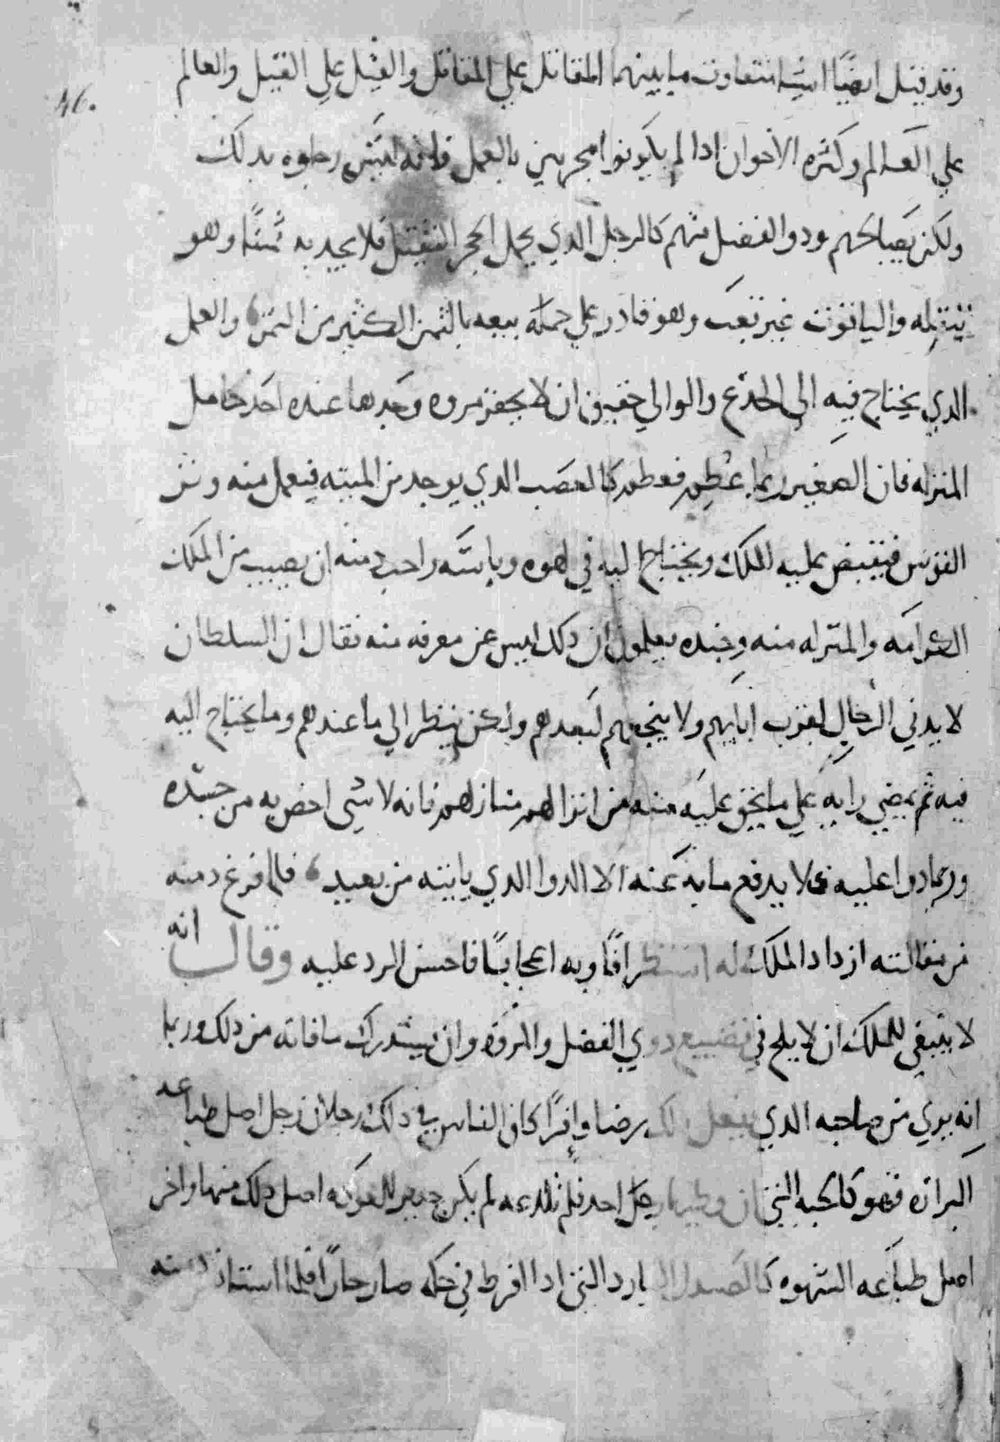 وقد قيل ايضًا اشيا تتفاوت ما بينهما المقاتل علي المقاتل والفيل علي الفيل والعالم
علي العالم وكثره الاخوان ادا لم يكونوا مجربين بالعمل فانه ليس رجاوه بدلك
ولكن بصالحهم ودوا الفضل منهم كالرجل الدي يحمل الحجر الثقيل فلا يجد به ثمنًا وهو
يثقله والياقوت غير تعب وهو قادر علي حمله بيعه بالثمن الكثير من الثمن والعمل
الدي يحتاج فيه الي الخدع والوالي حقيق ان لا يحقر مروه وجدها عند احد خامل
المنزله فان الصغير ربما عظم فعظم كالعصب الدي يوجد من الميته فيعمل منه وتر
القوس فيقبض عليه الملك ويحتاج اليه في لهوه وباسه واحب دمنه ان يصيب من الملك
الكرامه والمنزله منه وجنده يعلمون ان دلك ليس عن معرفه منه فقال ان السلطان
لا يدني الرجال لقرب ابايهم ولا ينحيهم لبعدهم ولكن ينظر الي ما عندهم وما يحتاج اليه
فيه ثم يمضي رايه علي ما يحق عليه منه من انزالهم منازلهم فانه لا شي اخص به من جسده
وربما دوا عليه فلا يدفع ما به عنه الا الدوا الدي ياتيه من بعيد فلما فرغ دمنه
من مقالته ازداد الملك له استظرافًا وبه اعجابًا فاحسن الرد عليه وقال انه
لا ينبغي للملك ان لا يلح في تضييع دوي الفضل والمروه وان يستدرك ما فاته من دلك وربما
انه يري من صاحبه الدي يفعل دلك به رضا وافرًا كان الناس في دلك رجلان رجل اصل طباعه
الشراسه فهو كالحيه التي ان وطيها رجل احد فلم تلدغه لم يكن جدير للعوده اصل دلك منها واخر
اصل طباعه السهوه كالصندل البارد التي ادا افرط في حكه صار حارًا فلما استانس دمنه